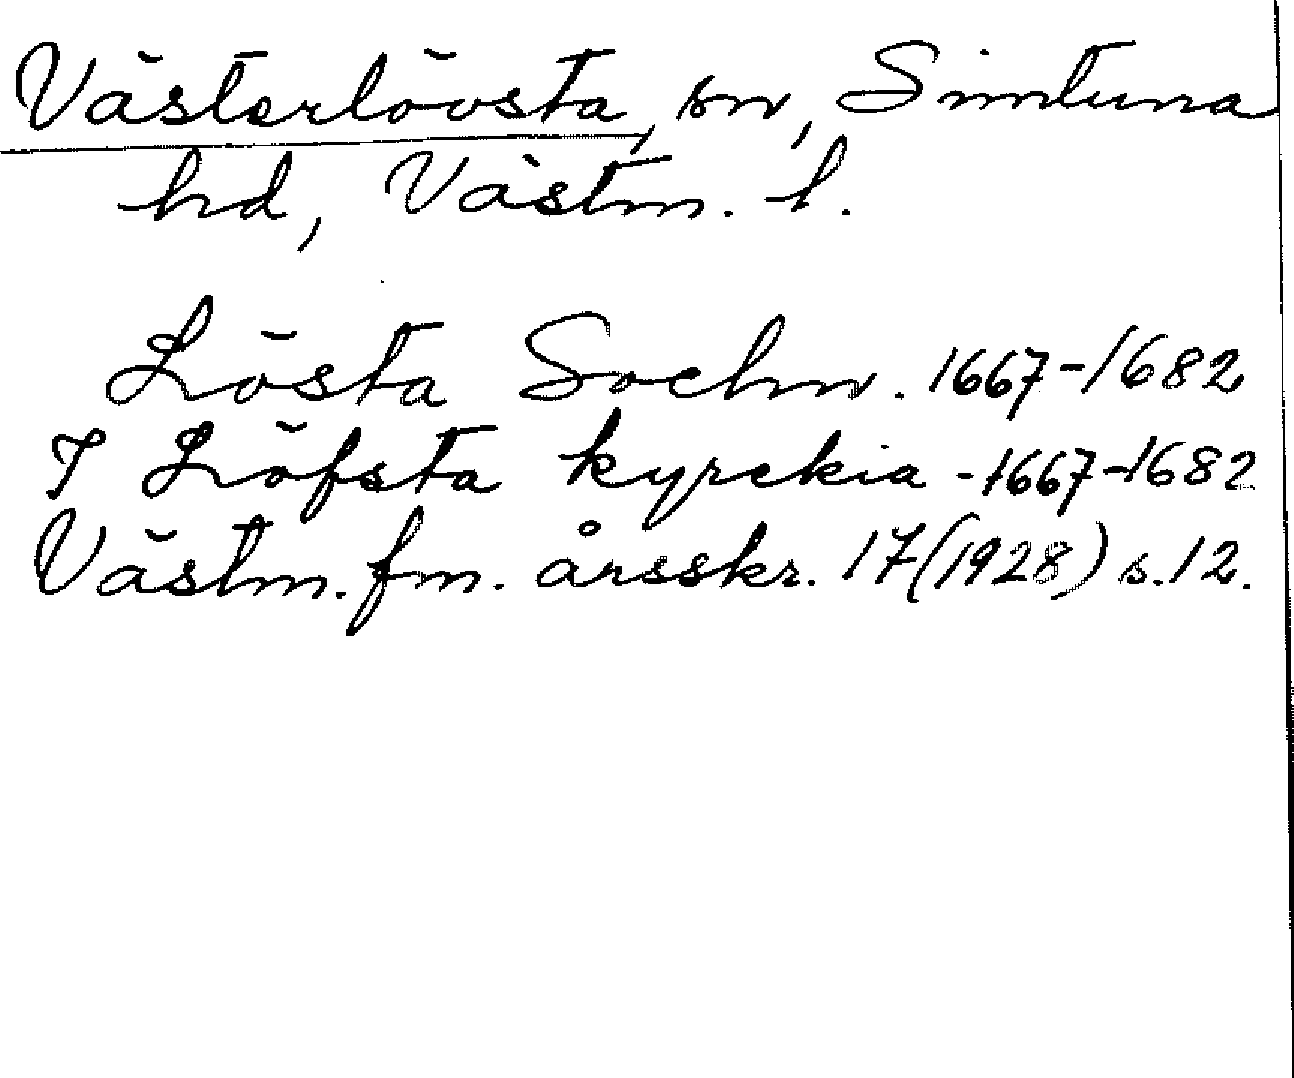 Västerlövsta, sn, Simtuna
hd, Västm. l.
Lösta Sochn. 1667-1682
I Löfsta kyrckia -1667-1682
Västm. fm. årsskr. 17 (1928) s. 12.